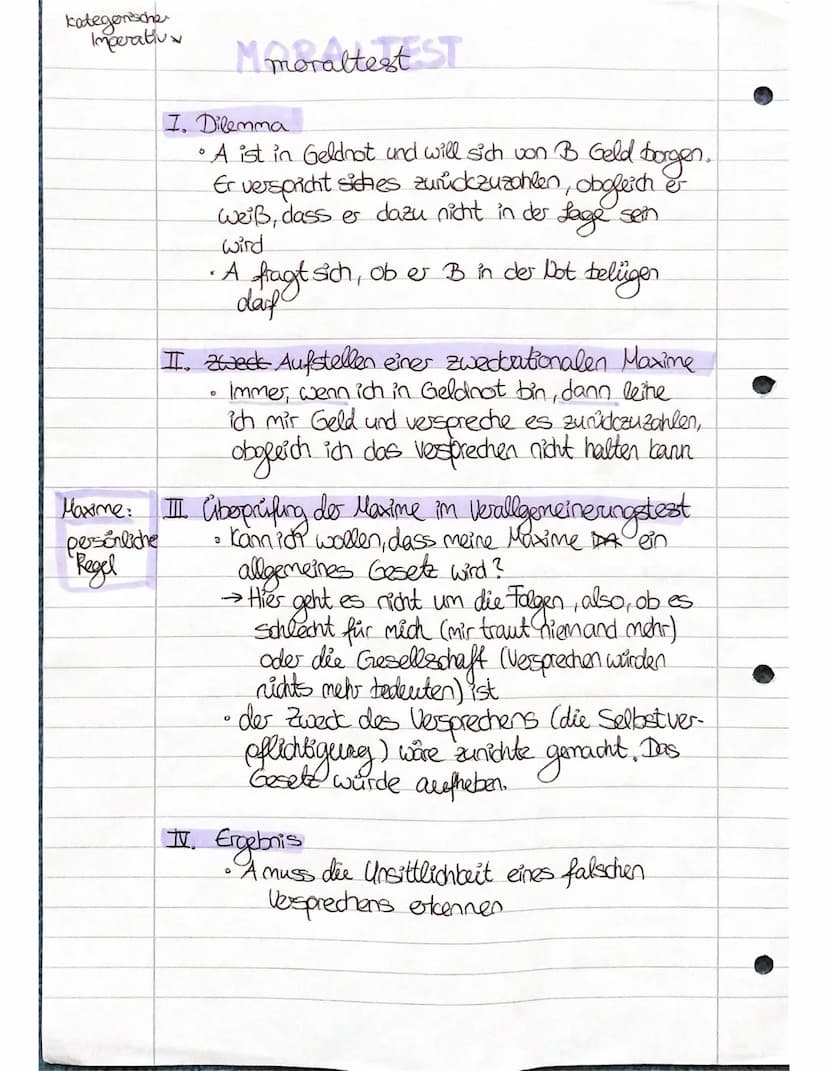 kategorischer
Imperativ
MORALTEST
moraltest
I. Dilemma
• A ist in Geldnot und will sich von B Geld borgen.
Er verspricht siches zurückzuzahlen, obgleich er
weiß, dass er dazu nicht in der Lage sein
wird
• A fragt sich, ob er B in der Not belügen
darf
II. zweck Aufstellen einer zweckrationalen Maxime
• Immer, wenn ich in Geldnot bin, dann leihe
ich mir Geld und verspreche es zurückzuzahlen,
obgleich ich das Versprechen nicht halten kann
Maxime:
persönliche
Regel
III. Überprüfung der Maxime im Verallgemeinerungstest
• Kann ich wollen, dass meine Maxime DA ein
allgemeines Gesetz wird?
→ Hier geht es nicht um die Folgen, also, ob es
schlecht für mich (mir traut niemand mehr)
oder die Gesellschaft (Versprechen würden
nichts mehr bedeuten) ist
• der Zweck des Versprechens (die Selbstver-
pflichtigung) wäre zunichte gemacht. Das
Gesetz würde aufheben.
IV. Ergebnis
• A muss die Unsittlichkeit eines falschen
Versprechens erkennen